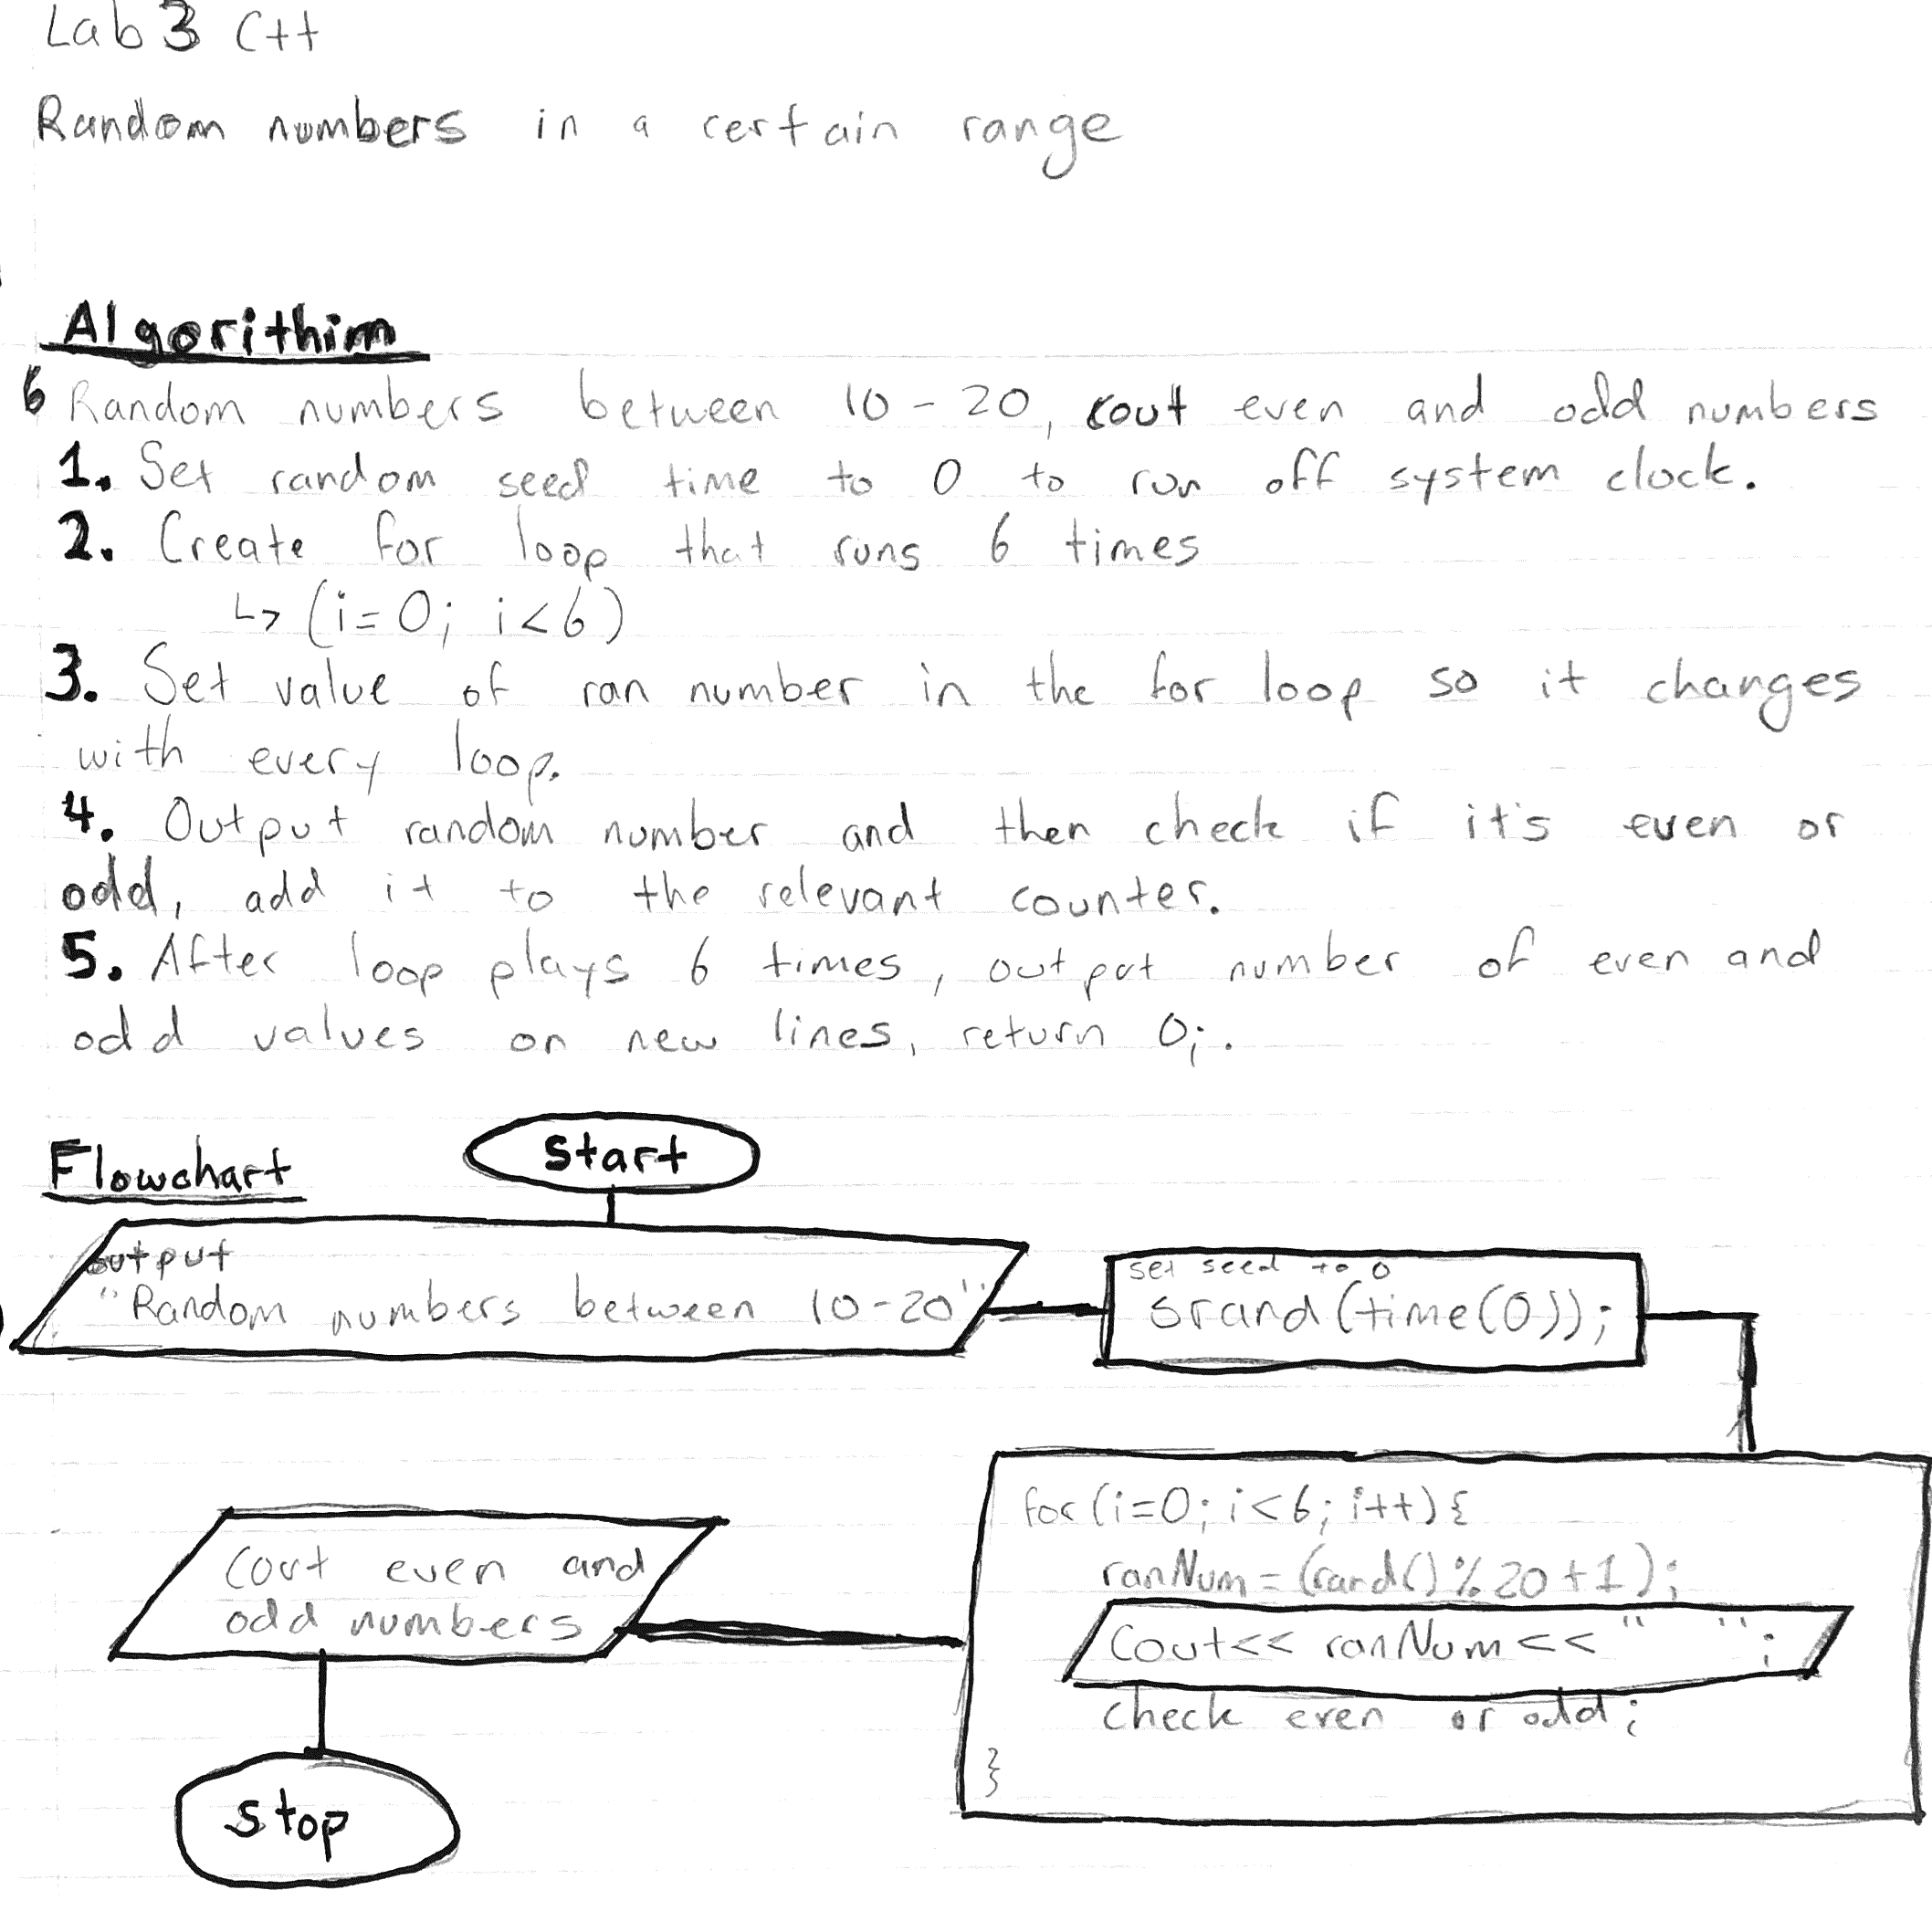 Lab 3 C++
Random numbers in a certain range
Algorithim
6 Random numbers between 10 - 20, cout even and odd numbers
1. Set random seed time to 0 to run off system clock.
2. Create for loop that runs 6 times
↳ (i=0; i<6)
3. Set value of ran number in the for loop so it changes
with every loop.
4. Output random number and then check if it's even or
odd, add it to the relevant counter.
5. After loop plays 6 times, output number of even and
odd values on new lines, return 0;.
Flowchart
Start
output
"Random numbers between 10-20"
set seed to 0
Srand(time(0));
for(i=0; i<6; i++){
ranNum = (rand()%20+1);
Cout<< ranNum << " ";
check even or odd;
}
Cout even and
odd numbers
Stop